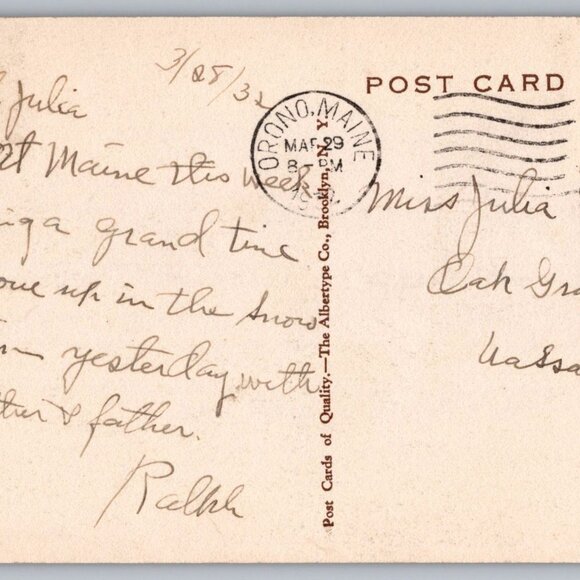 3/28/32
Julia
At Maine this week
ing a grand time
ove up in the snow
yesterday with
ther & father.
Ralph
Post Cards of Quality.—The Albertype Co., Brooklyn, N. Y.
ORONO, MAINE
MAR 29
8 - PM
POST CARD
Miss Julia
Oak Gro
Vassa